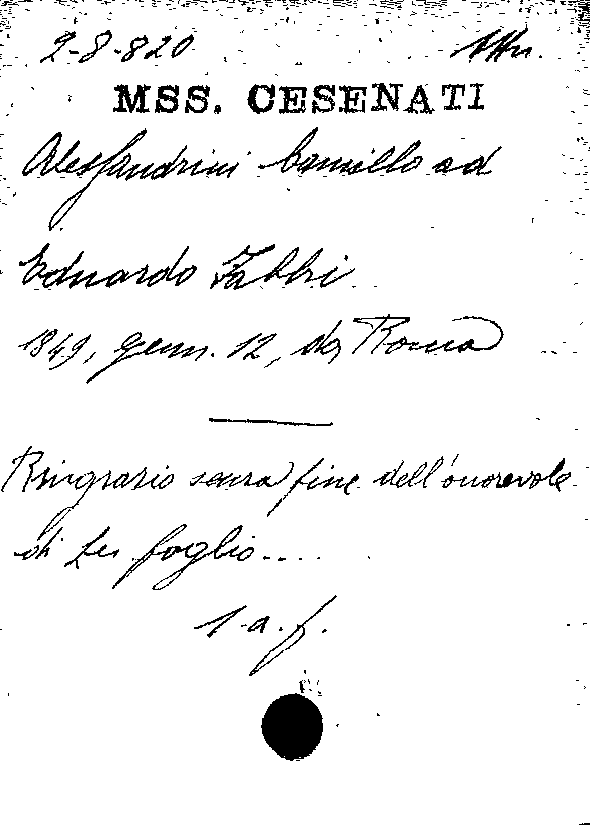 2-8-820
MSS. CESENATI
Alessandrini Camillo ad
Eduardo Fabbri
1849, genn. 12, da Roma
Ringrazio senza fine dell'onorevole
di Lei foglio....
1 a. f.